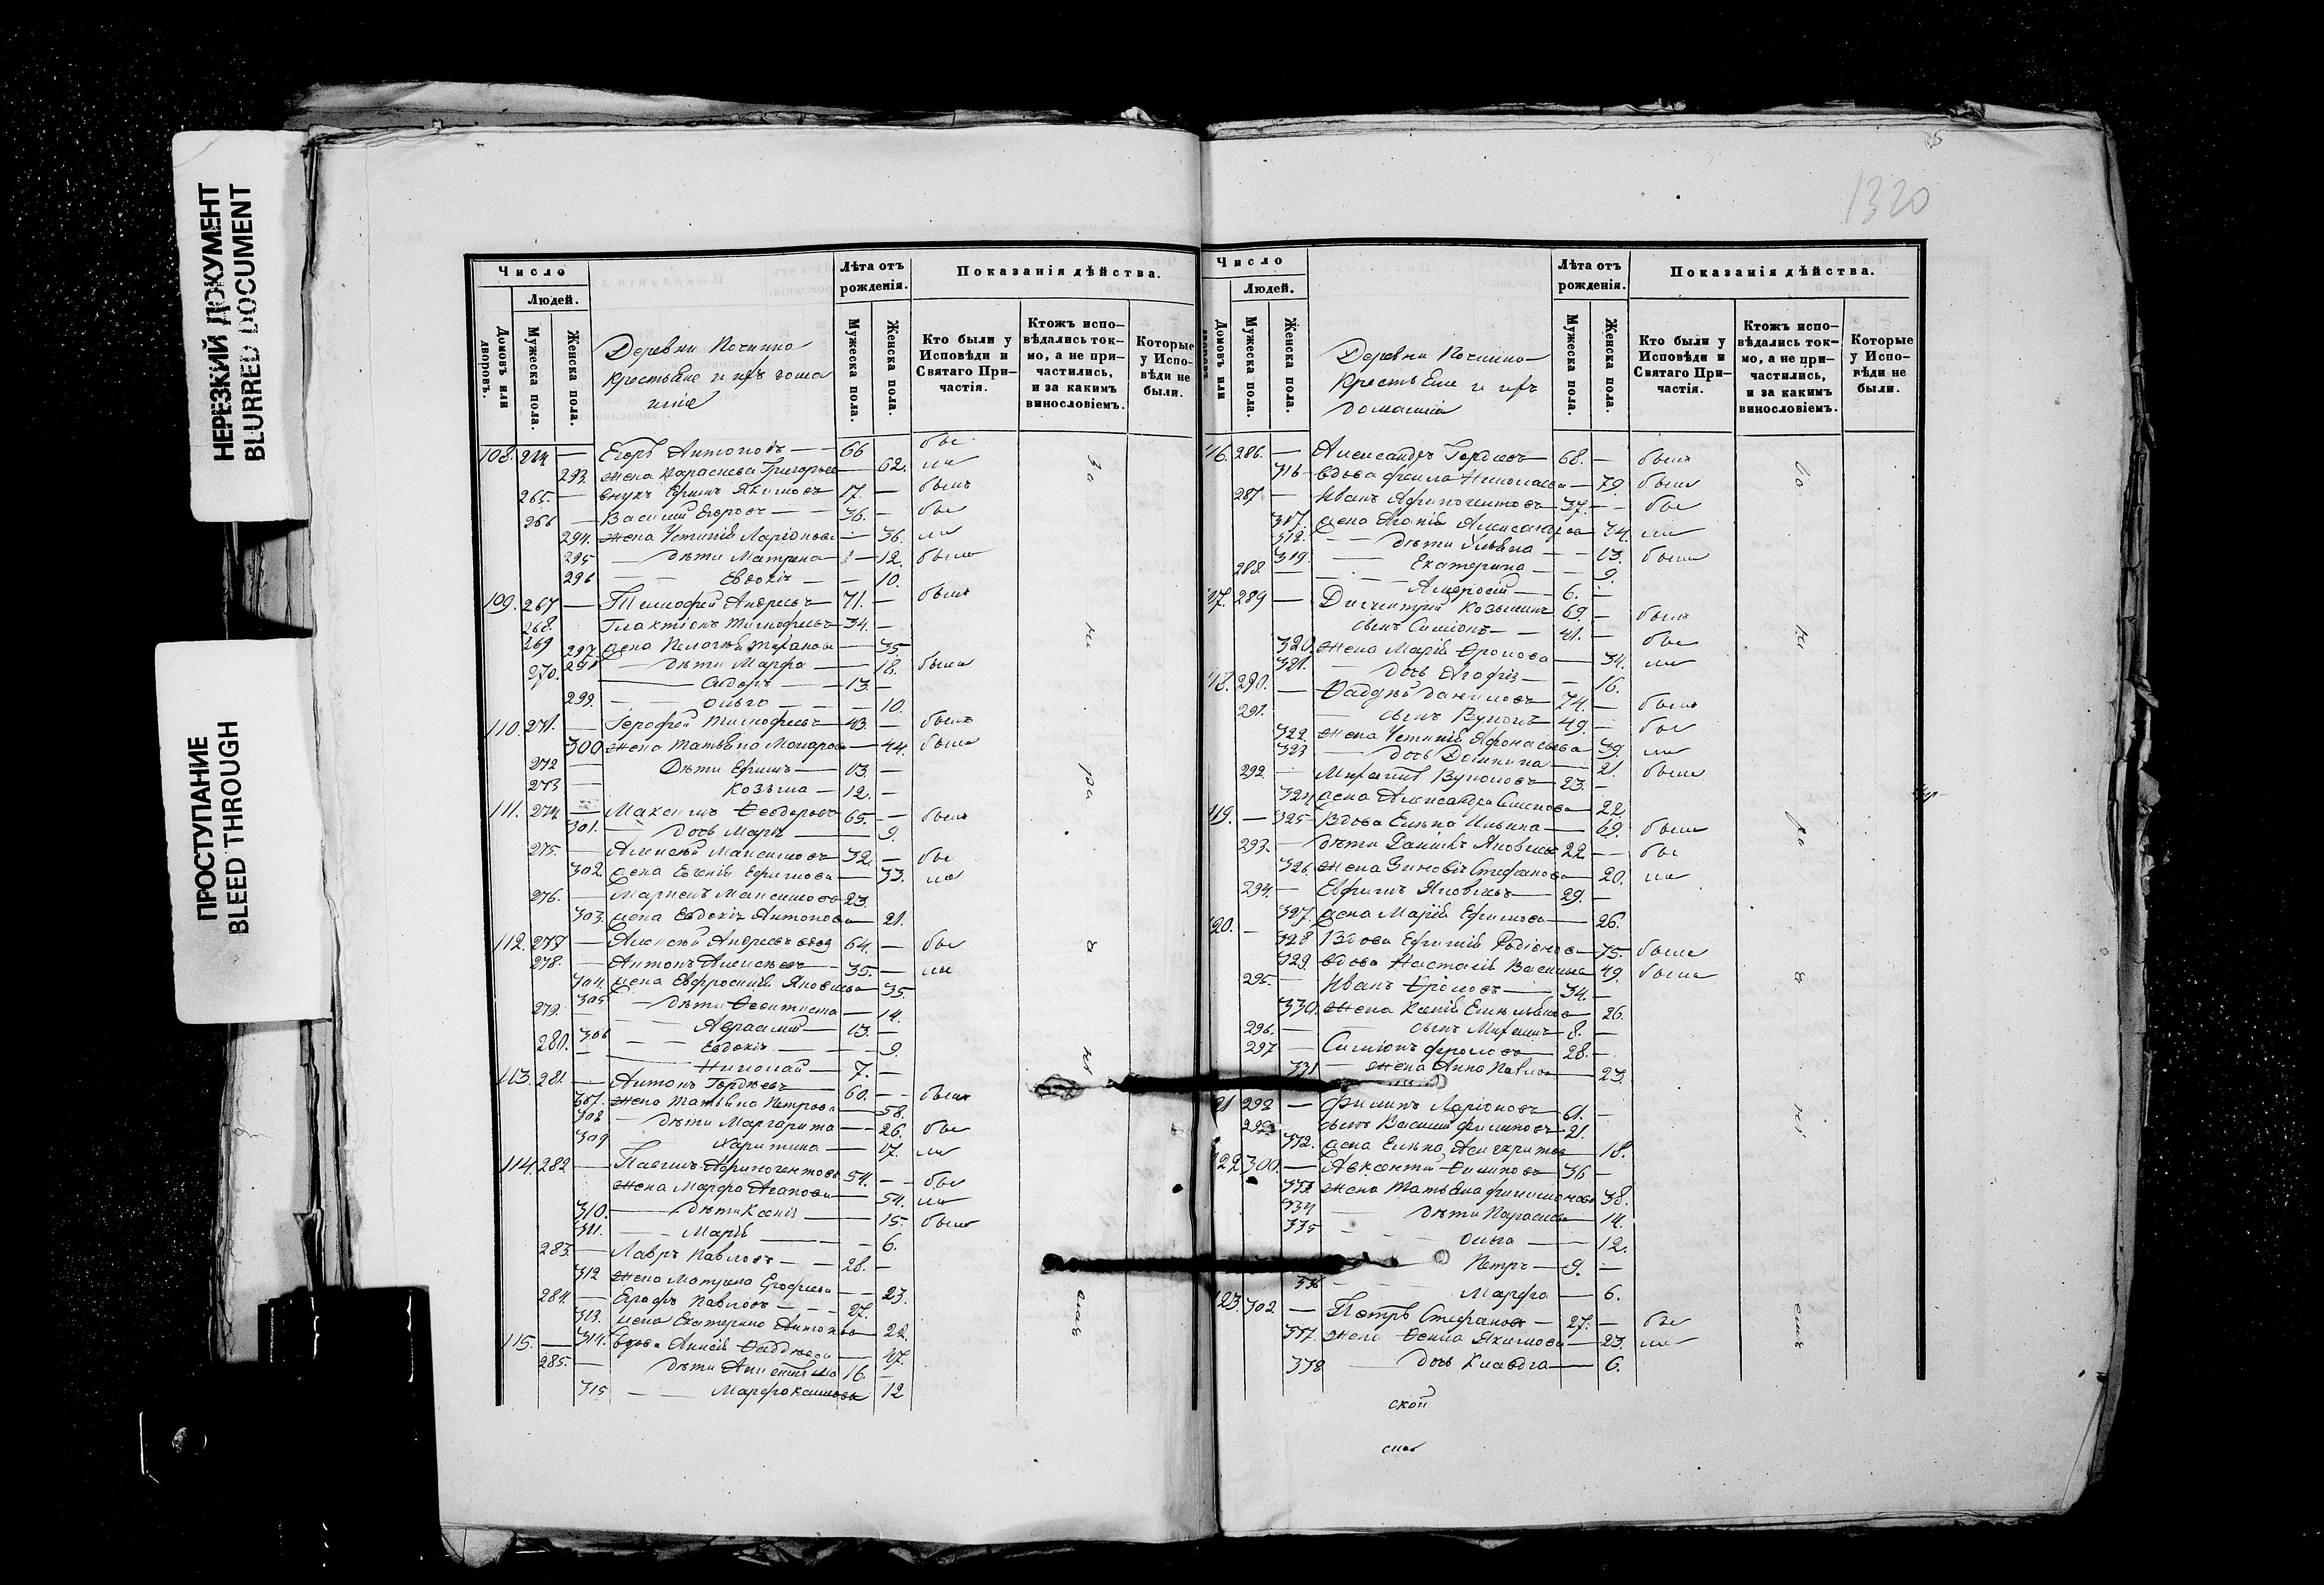 НЕРЕЗКИЙ ДОКУМЕНТ
BLURRED DOCUMENT
ПРОСТУПАНИЕ
BLEED THROUGH
Число
Людей.
Домовъ или дворовъ.
Мужеска пола.
Женска пола.
Деревни Починка
крестьяне и ихъ дома
шніе
Лѣта отъ рожденія.
Мужеска пола.
Женска пола.
Показанія дѣйства.
Кто были у Исповѣди и Святаго При-частія.
Ктожъ испо-вѣдались ток-мо, а не при-частились, и за какимъ винословіемъ.
Которые у Испо-вѣди не были.
108. 264 — Егоръ Антоновъ — 66 бы
293. жена Параскева Григорьева — 62. ли
265. — внукъ Ефимъ Якимовъ 17. — былъ
266 — Василий Егоровъ — 36. — бы
294. жена Устинія Ларіонова — 36. ли
295 — дѣти Матрена — 12. была
296 — Евдокія — 10.
109. 267 — Тимофей Андреевъ — 71. — былъ
268. Галактіонъ Тимофеевъ — 34. —
269 297. жена Пелагѣя — 35.
298 — дѣти Марфа — 18. была
270. Сидоръ — 13. —
299. — Ольга — 10.
110. 271. — Герофей Тимофеевъ — 43 — былъ
300 жена Татьяна Макарова — 44. была
272 — дѣти Ефимъ — 13. —
273 — Козьма — 12. —
111. 274 — Максимъ Ѳеодоровъ 65. — былъ
301. — дочь Марія — 9.
275. — Алексѣй Максимовъ 32. — бы
302 жена Евгенія Ефимова — 33. ли
276. — Маркелъ Максимовъ 23.
303. жена Евдокія Антонова 21.
112. 277 — Алексѣй Андреевъ вдов 64. — бы
278. — Антонъ Алексѣевъ — 35. — ли
304. жена Евфросинія Яковлева 35.
305 — дѣти Ѳеоктиста — 14.
279. — Аврамій — 13. —
306 — Евдокія — 9.
280. — Николай — 7. —
113. 281. — Антонъ Гордѣевъ — 60. — былъ
307. жена Татьяна Петрова — 58.
308 — дѣти Маргарита — 26. бы
309 — Харитина — 17. ли
114. 282 — Павелъ Афиногентовъ 54. — бы
жена Марфа Агапова — 54. ли
310. — дѣти Ксенія — 15. была
311. — Марія — 6.
283. — Лавръ Павловъ — 28. —
312 жена Матрена Ерофеева — 23.
284. — Ерофъ Павловъ — 27.
313. жена Екатерина Антонова 22.
115. — 314. вдова Анисія Ѳаддѣева — 47.
285. — дѣти 16. —
315 — Марфа 12
за
ни
ра
ч
ні
емъ
1320
Число
Людей.
Домовъ или дворовъ
Мужеска пола.
Женска пола.
Деревни Починка
крестьяне и ихъ
домашніе
Лѣта отъ рожденія.
Мужеска пола.
Женска пола.
Показанія дѣйства.
Кто были у Исповѣди и Святаго При-частія.
Ктожъ испо-вѣдались ток-мо, а не при-частились, и за какимъ винословіемъ.
Которые у Испо-вѣди не были.
16. 286. — Александръ Гордѣевъ — 68. — былъ
316 — вдова Николаева — 79. была
287 — Иванъ Афиногентовъ 37. — бы
317. жена Агапія Александрова 34. ли
318. — дѣти Ульяна — 13. была
319. — Екатерина — 9.
288. — Амвросій — 6. —
17. 289 — Дементій Козьминъ 69. — былъ
сынъ Симіонъ — 41. — бы
320. жена Марія Фролова — 34. ли
321. — дочь Агафія — 16.
18. 290. — Ѳаддѣй Даниловъ — 74. — былъ
291. — сынъ Вуколъ — 49. — бы
322. жена Устинія Афонасьева 39. ли
323 — дочь Домнина — 21. была
292. — Вуколовъ — 23. —
324. жена Александра Симонова — 22.
119. — 325 — Вдова Елѣна Ильина — 69. была
293. — дѣти Даниилъ Яковлевъ 22. — бы
326. жена Зиновія Стефанова — 20. ли
294. — Евфимъ Яковлевъ — 29. —
327. жена Марія Ефимова — 26.
20. — 328 Вдова Ефимія Родіонова — 75. была
329. вдова Настасія Васильева 49. была
295. — Иванъ Фроловъ — 34. —
330. жена Ксенія Емельянова 26.
296. — сынъ 8. —
297 — Симіонъ Фроловъ — 28. —
331 — жена Анна Павлова — 23.
21 298 — Филипъ Ларіоновъ — 61. —
299 сынъ Василій Филиповъ 21.
332. жена Елѣна 18.
122 300. — Авксентій Филиповъ — 36 —
333. жена Татьяна Филимонова 38.
334 — дѣти Параскева — 14.
335 — Ольга — 12.
Петръ — 9. —
336 — Марфа — 6.
123. 302 — Петръ Стефановъ — 27. — бы
337. жена Ѳекла Якимова — 23. ли
338 — дочь Клавдія — 6.
во
ни
ра
ч
ні
емъ
ской